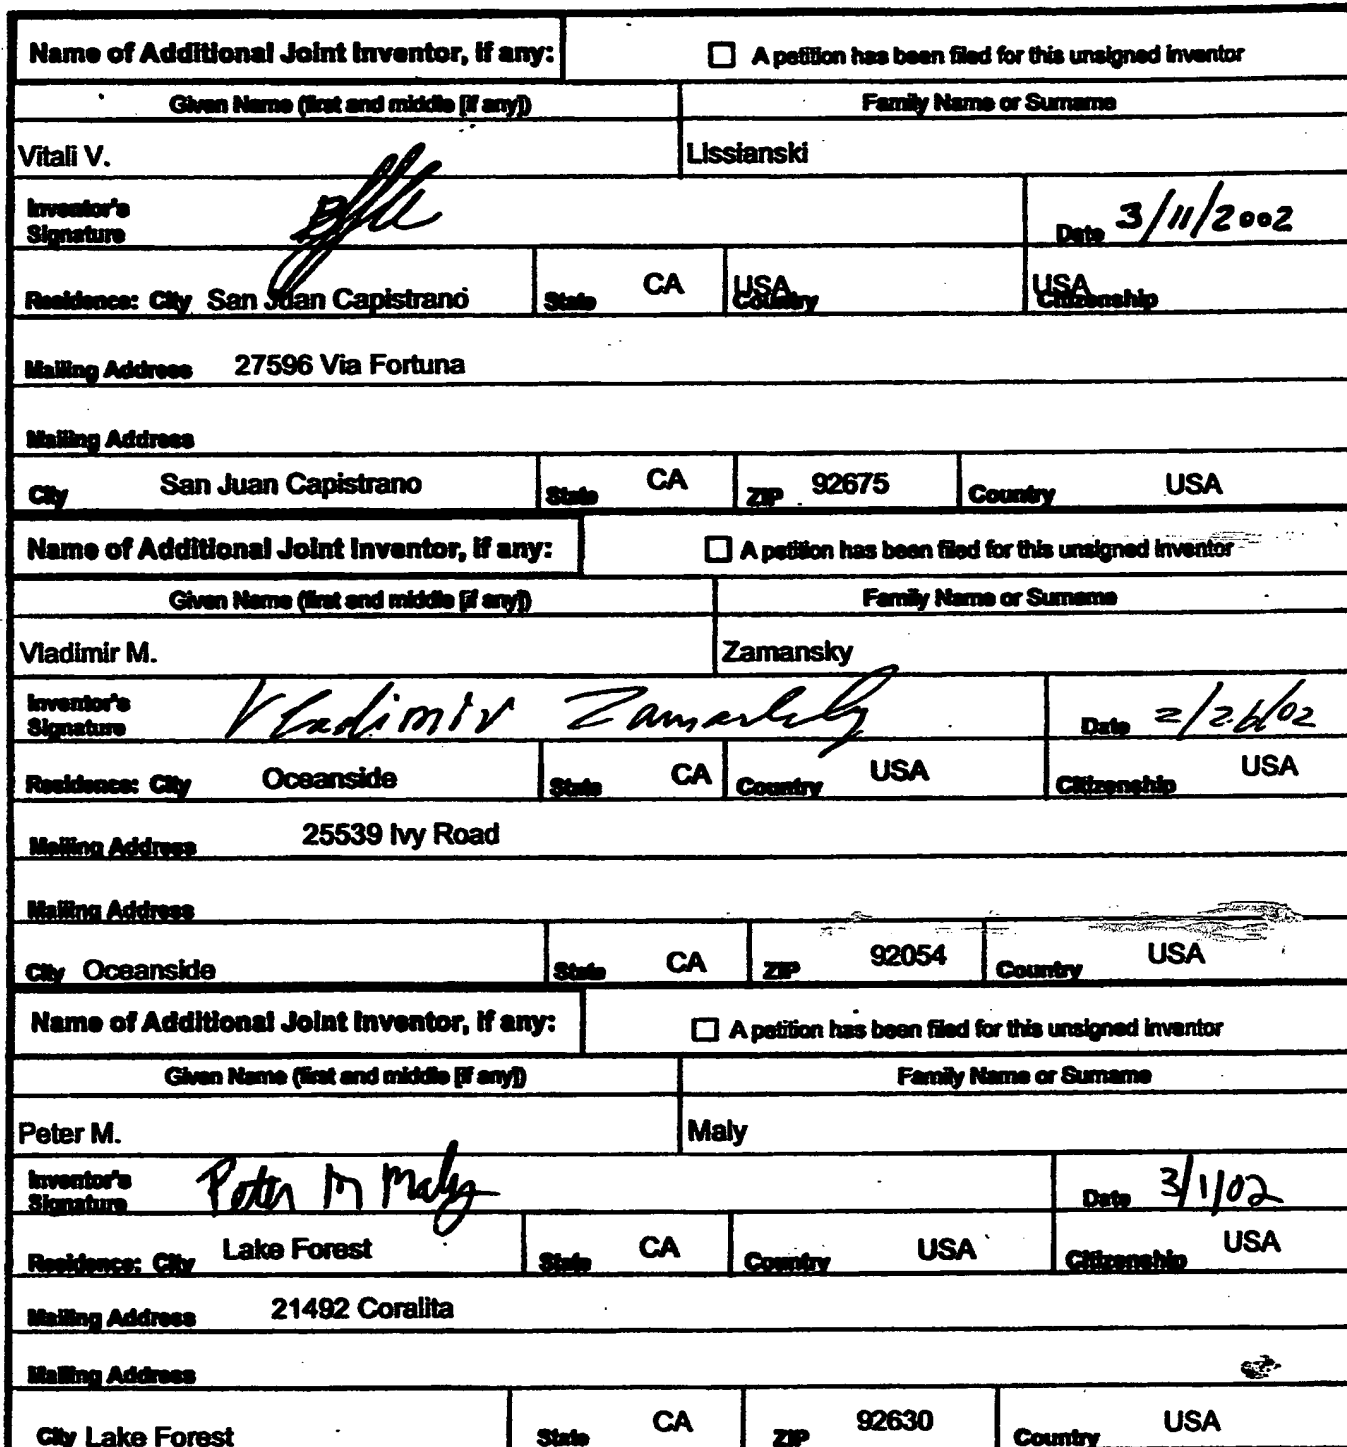 Name of Additional Joint Inventor, if any: ☐ A petition has been filed for this unsigned inventor
Given Name (first and middle [if any]) Family Name or Surname
Vitali V. Lissianski
Inventor's
Signature Date 3/11/2002
Residence: City San Juan Capistrano State CA USA Country USA Citizenship
Mailing Address 27596 Via Fortuna
Mailing Address
City San Juan Capistrano State CA ZIP 92675 Country USA
Name of Additional Joint Inventor, if any: ☐ A petition has been filed for this unsigned inventor
Given Name (first and middle [if any]) Family Name or Surname
Vladimir M. Zamansky
Inventor's
Signature Vladimir Zamansky Date 2/26/02
Residence: City Oceanside State CA Country USA Citizenship USA
Mailing Address 25539 Ivy Road
Mailing Address
City Oceanside State CA ZIP 92054 Country USA
Name of Additional Joint Inventor, if any: ☐ A petition has been filed for this unsigned inventor
Given Name (first and middle [if any]) Family Name or Surname
Peter M. Maly
Inventor's
Signature Peter M Maly Date 3/1/02
Residence: City Lake Forest State CA Country USA Citizenship USA
Mailing Address 21492 Coralita
Mailing Address
City Lake Forest State CA ZIP 92630 Country USA